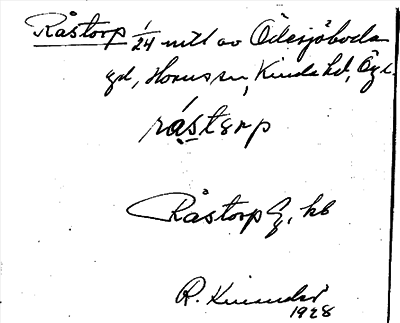 Råstorp 1/24 mtl av Ödesjöboda
gd, Horns sn, Kinda hd, Ögl.
råstɵrp
Råstorp Ek, kb
R. Kinander
1928